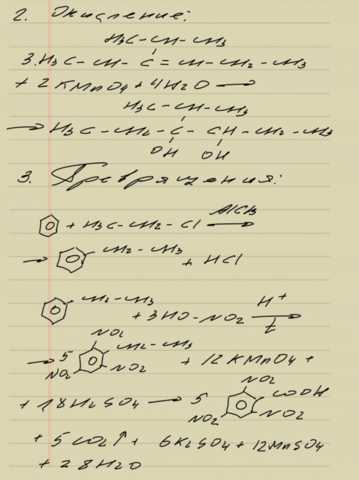 2. Окисление:
H3C-CH-CH3
3. H3C-CH2-C=CH-CH2-CH3
+ 2KMnO4 + 4H2O →
H3C-CH-CH3
→ H3C-CH2-C-CH-CH2-CH3
OH OH
3. Превращения:
+ H3C-CH2-Cl AlCl3 →
→ CH2-CH3 + HCl
CH2-CH3 + 3HO-NO2 H+ t →
NO2
→ 5 CH2-CH3 + 12KMnO4 +
NO2 NO2
NO2
+ 18H2SO4 → 5 COOH
NO2 NO2
+ 5CO2↑ + 6K2SO4 + 12MnSO4
+ 28H2O